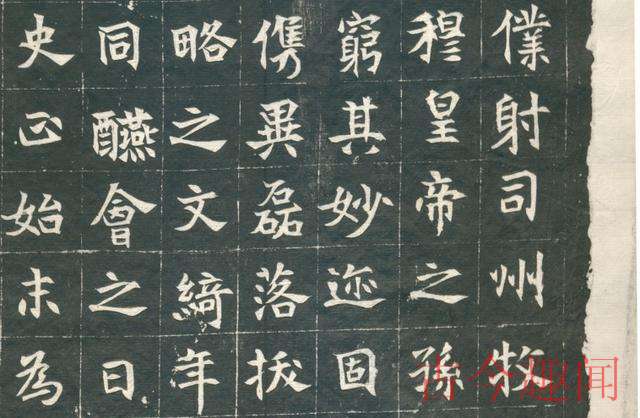 僕射司州牧
穆皇帝之孫
窮其妙迹固
儁異磊落拔
略之文綺年
同醼會之日
史正始末為
古今趣闻